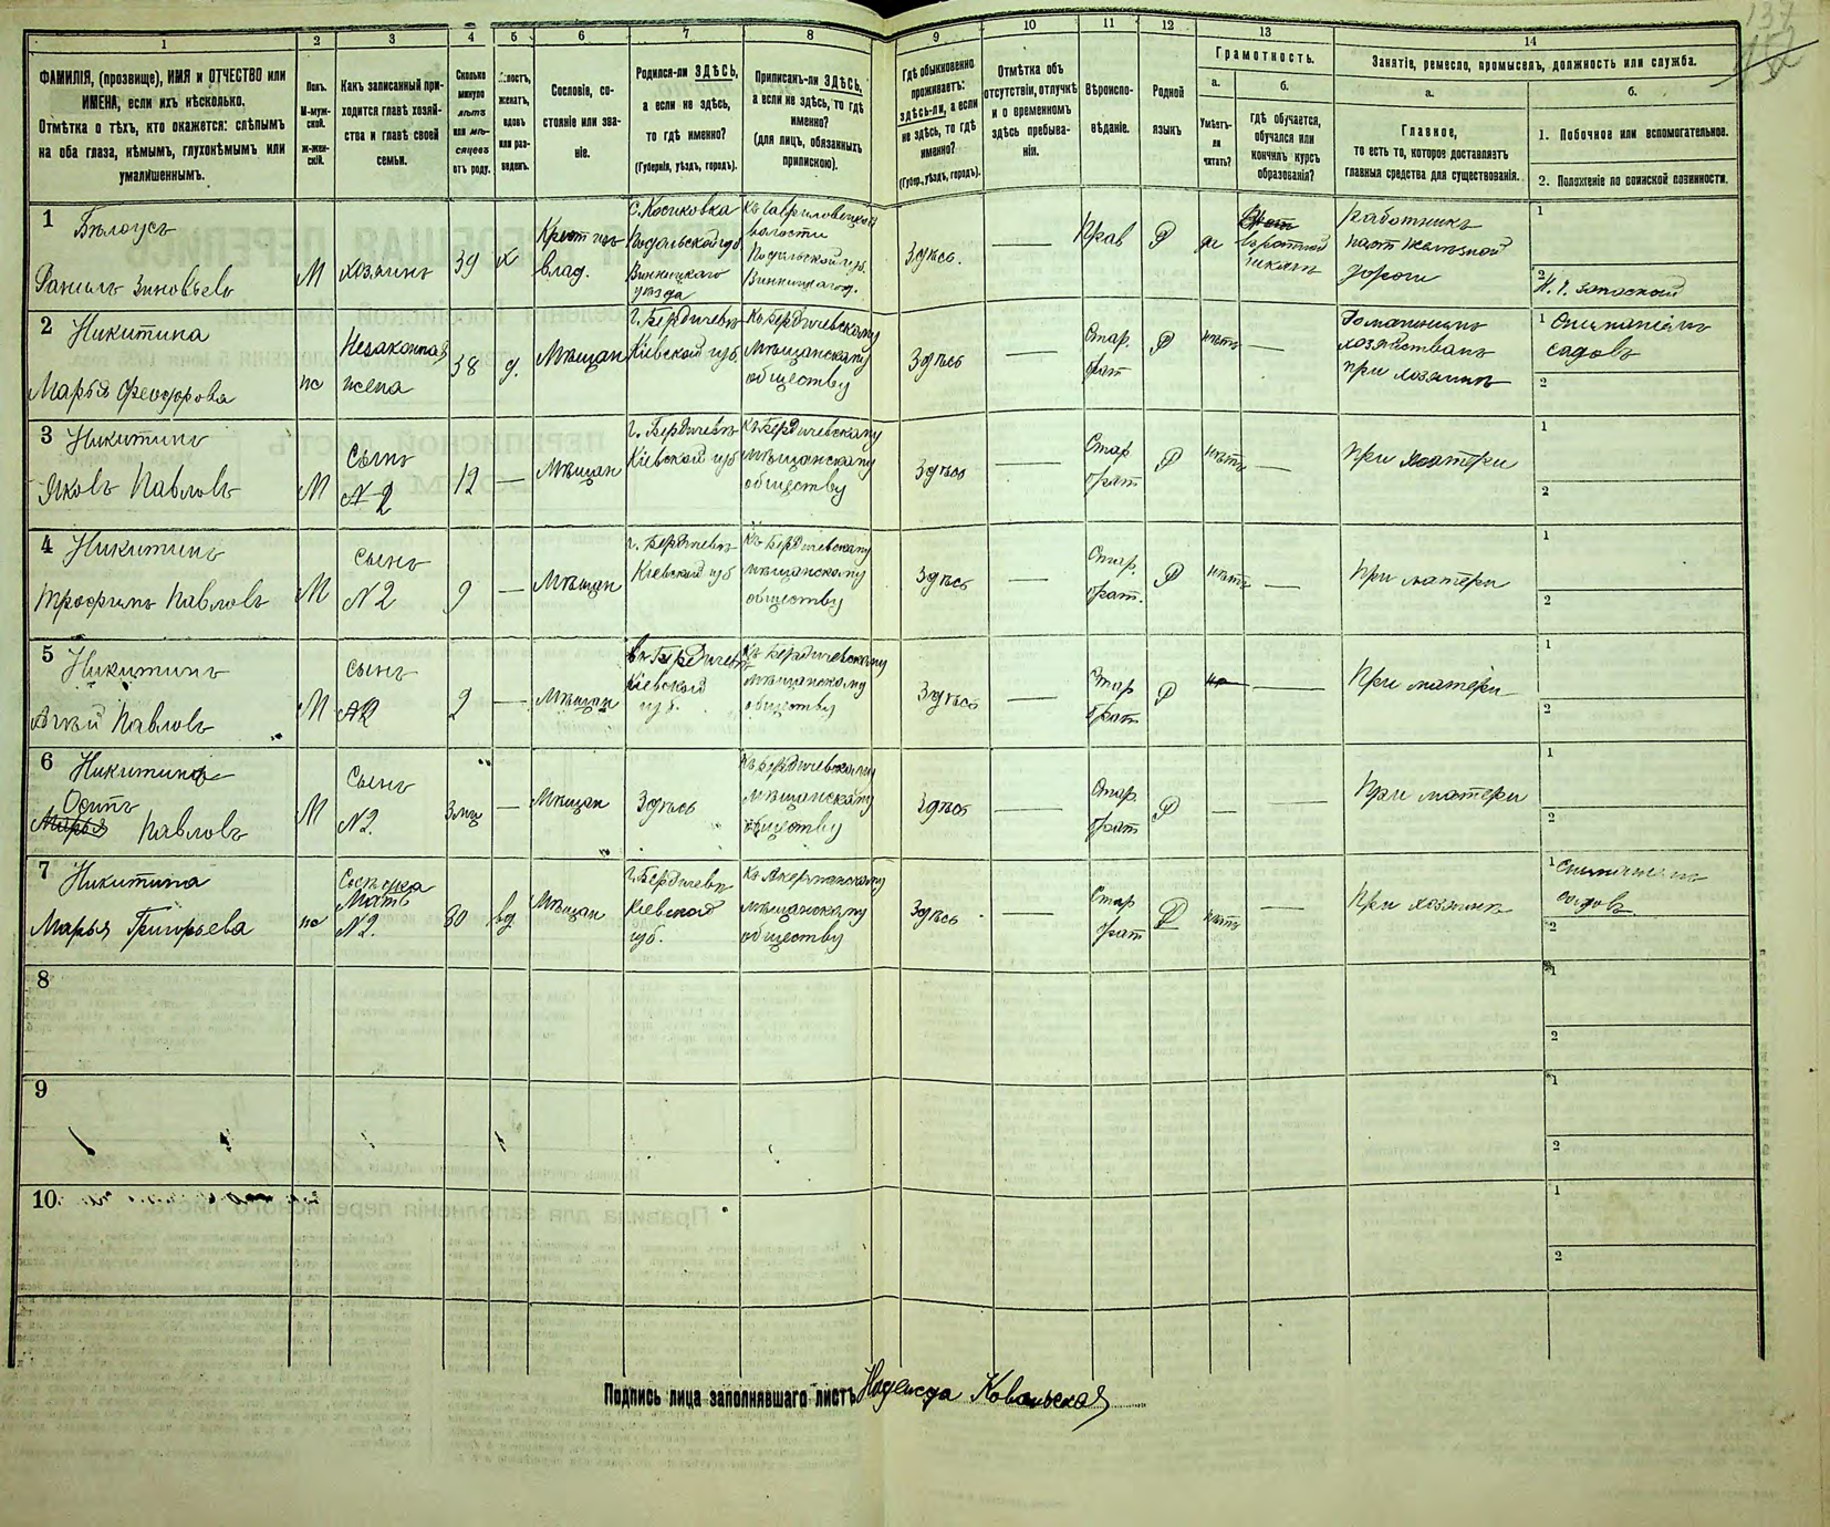 137
1 2 3 4 5 6 7 8 9 10 11 12 13 14
ФАМИЛІЯ, (прозвище), ИМЯ и ОТЧЕСТВО или
ИМЕНА, если ихъ нѣсколько.
Отмѣтка о тѣхъ, кто окажется: слѣпымъ
на оба глаза, нѣмымъ, глухонѣмымъ или
умалишеннымъ.
Полъ.
М-муж-
ской.
ж-жен-
скій.
Какъ записанный при-
ходится главѣ хозяй-
ства и главѣ своей
семьи.
Сколько
минуло
лѣтъ
или мѣ-
сяцевъ
отъ роду.
женатъ,
вдовъ
или раз-
веденъ.
Сословіе, со-
стояніе или зва-
ніе.
Родился-ли ЗДѢСЬ,
а если не здѣсь,
то гдѣ именно?
(Губернія, уѣздъ, городъ).
Приписанъ-ли ЗДѢСЬ,
а если не здѣсь, то гдѣ
именно?
(для лицъ, обязанныхъ
припискою).
Гдѣ обыкновенно
проживаетъ:
здѣсь-ли, а если
не здѣсь, то гдѣ
именно?
(Губер., уѣздъ, городъ).
Отмѣтка объ
отсутствіи, отлучкѣ
и о временномъ
здѣсь пребыва-
ніи.
Вѣроиспо-
вѣданіе.
Родной
языкъ
Грамотность.
а.
Умѣетъ-
ли
читать?
б.
гдѣ обучается,
обучался или
кончилъ курсъ
образованія?
Занятіе, ремесло, промыселъ, должность или служба.
а.
Главное,
то есть то, которое доставляетъ
главныя средства для существованія.
б.
1. Побочное или вспомогательное.
2. Положеніе по воинской повинности.
1 Бѣлоусъ
Данилъ Зиновьевъ
М
хозяинъ
39
Крест изъ
влад.
Подольской губ
Винницкаго
уѣзда
волости
Подольской губ.
Винницкаго у.
Здѣсь.
Прав
Р
да
Работникъ
дороги
1
2
2 Никитина
Марья Феодорова
Незаконная
жена
38
Мѣщан
г. Бердичевъ
Кіевской губ.
Къ Бердичевскому
Мѣщанскому
обществу
Здѣсь
Стар
Р
нѣтъ
хозяйствомъ
при хозяинѣ
1
садовъ
2
3 Никитинъ
Яковъ Павловъ
М
Сынъ
№ 2
12
Мѣщан
г. Бердичевъ
Кіевской губ
Къ Бердичевскому
мѣщанскому
обществу
Здѣсь
Стар
Р
нѣтъ
при матери
1
2
4 Никитинъ
Трофимъ Павловъ
М
Сынъ
№ 2
9
Мѣщан
г. Бердичевъ
Кіевской губ
Къ Бердичевскому
мѣщанскому
обществу
Здѣсь
Стар.
Р
нѣтъ
При матери
1
2
5 Никитинъ
Павловъ
М
Сынъ
№2
2
Мѣщан
въ Бердичевѣ
Кіевской
губ.
Къ Бердичевскому
мѣщанскому
обществу
Здѣсь
Стар
Р
При матери
1
2
6 Никитинъ
Осипъ
Марья Павловъ
М
Сынъ
№2.
3 мц
Мѣщан
Здѣсь
Къ Бердичевскому
мѣщанскому
обществу
Здѣсь
Стар.
Р
При матери
1
2
7 Никитина
Марья Григорьева
Мать
№2
вд
Мѣщан
г. Бердичевъ
Кіевской
губ.
Къ Акерманскому
мѣщанскому
обществу
Здѣсь
Стар
Р
нѣтъ
При хозяинѣ
1
садовъ
2
8
1
2
9
1
2
10
1
2
Подпись лица заполнявшаго листъ Надежда Ковальская